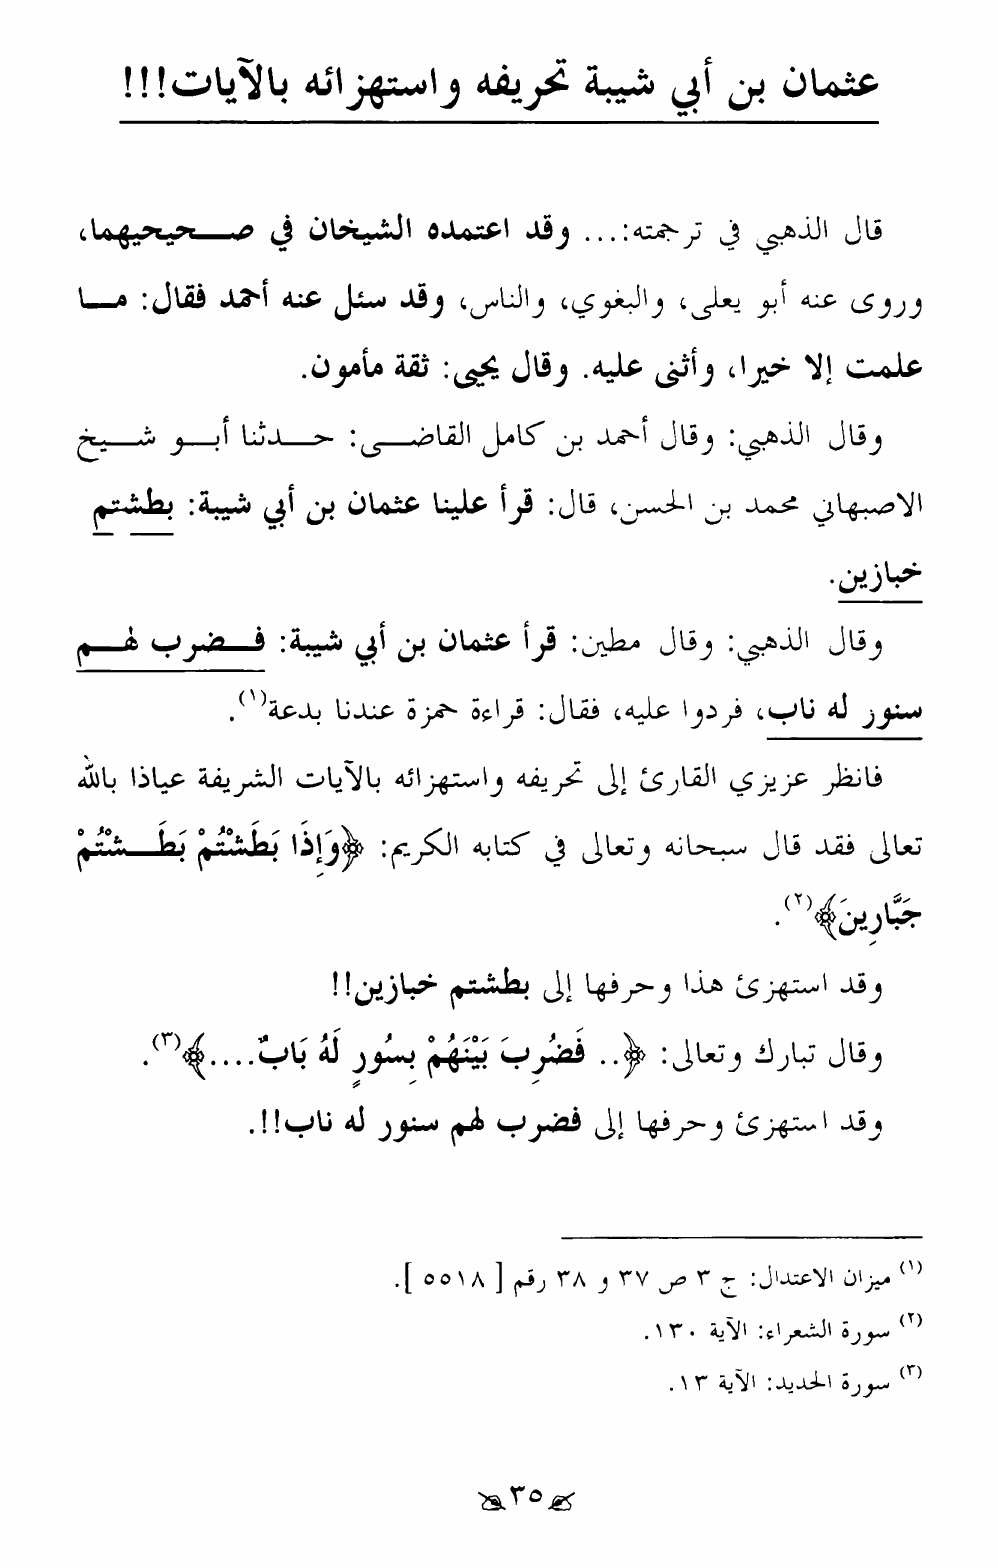 عثمان بن أبي شيبة تحريفه واستهزائه بالآيات!!!
قال الذهبي في ترجمته:... وقد اعتمده الشيخان في صحيحيهما،
وروى عنه أبو يعلى، والبغوي، والناس، وقد سئل عنه أحمد فقال: ما
علمت إلا خيرا، وأثنى عليه. وقال يحيى: ثقة مأمون.
وقال الذهبي: وقال أحمد بن كامل القاضى: حدثنا أبو شيخ
الاصبهاني محمد بن الحسن، قال: قرأ علينا عثمان بن أبي شيبة: بطشتم
خبازين.
وقال الذهبي: وقال مطين: قرأ عثمان بن أبي شيبة: فضرب لهم
سنور له ناب، فردوا عليه، فقال: قراءة حمزة عندنا بدعة(١).
فانظر عزيزي القارئ إلى تحريفه واستهزائه بالآيات الشريفة عياذا بالله
تعالى فقد قال سبحانه وتعالى في كتابه الكريم: ﴿وَإِذَا بَطَشْتُمْ بَطَشْتُمْ
جَبَّارِينَ﴾(٢).
وقد استهزئ هذا وحرفها إلى بطشتم خبازين!!
وقال تبارك وتعالى: ﴿.. فَضُرِبَ بَيْنَهُمْ بِسُورٍ لَهُ بَابٌ....﴾(٣).
وقد استهزئ وحرفها إلى فضرب لهم سنور له ناب!!.
(١) ميزان الاعتدال: ج ٣ ص ٣٧ و ٣٨ رقم [ ٥٥١٨ ].
(٢) سورة الشعراء: الآية ١٣٠.
(٣) سورة الحديد: الآية ١٣.
٣٥